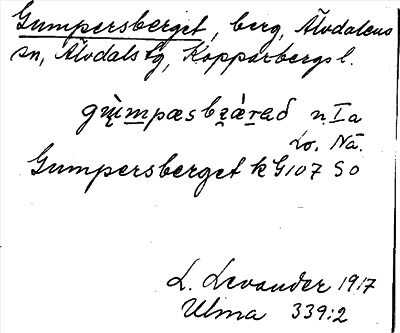 Gumpersberget, berg, Älvdalens
sn, Älvdals tg, Kopparbergs l.
n Ia
Lo. Nä.
Gumpersberget k G107 SO
L. Levander 1917
Ulma 339:2